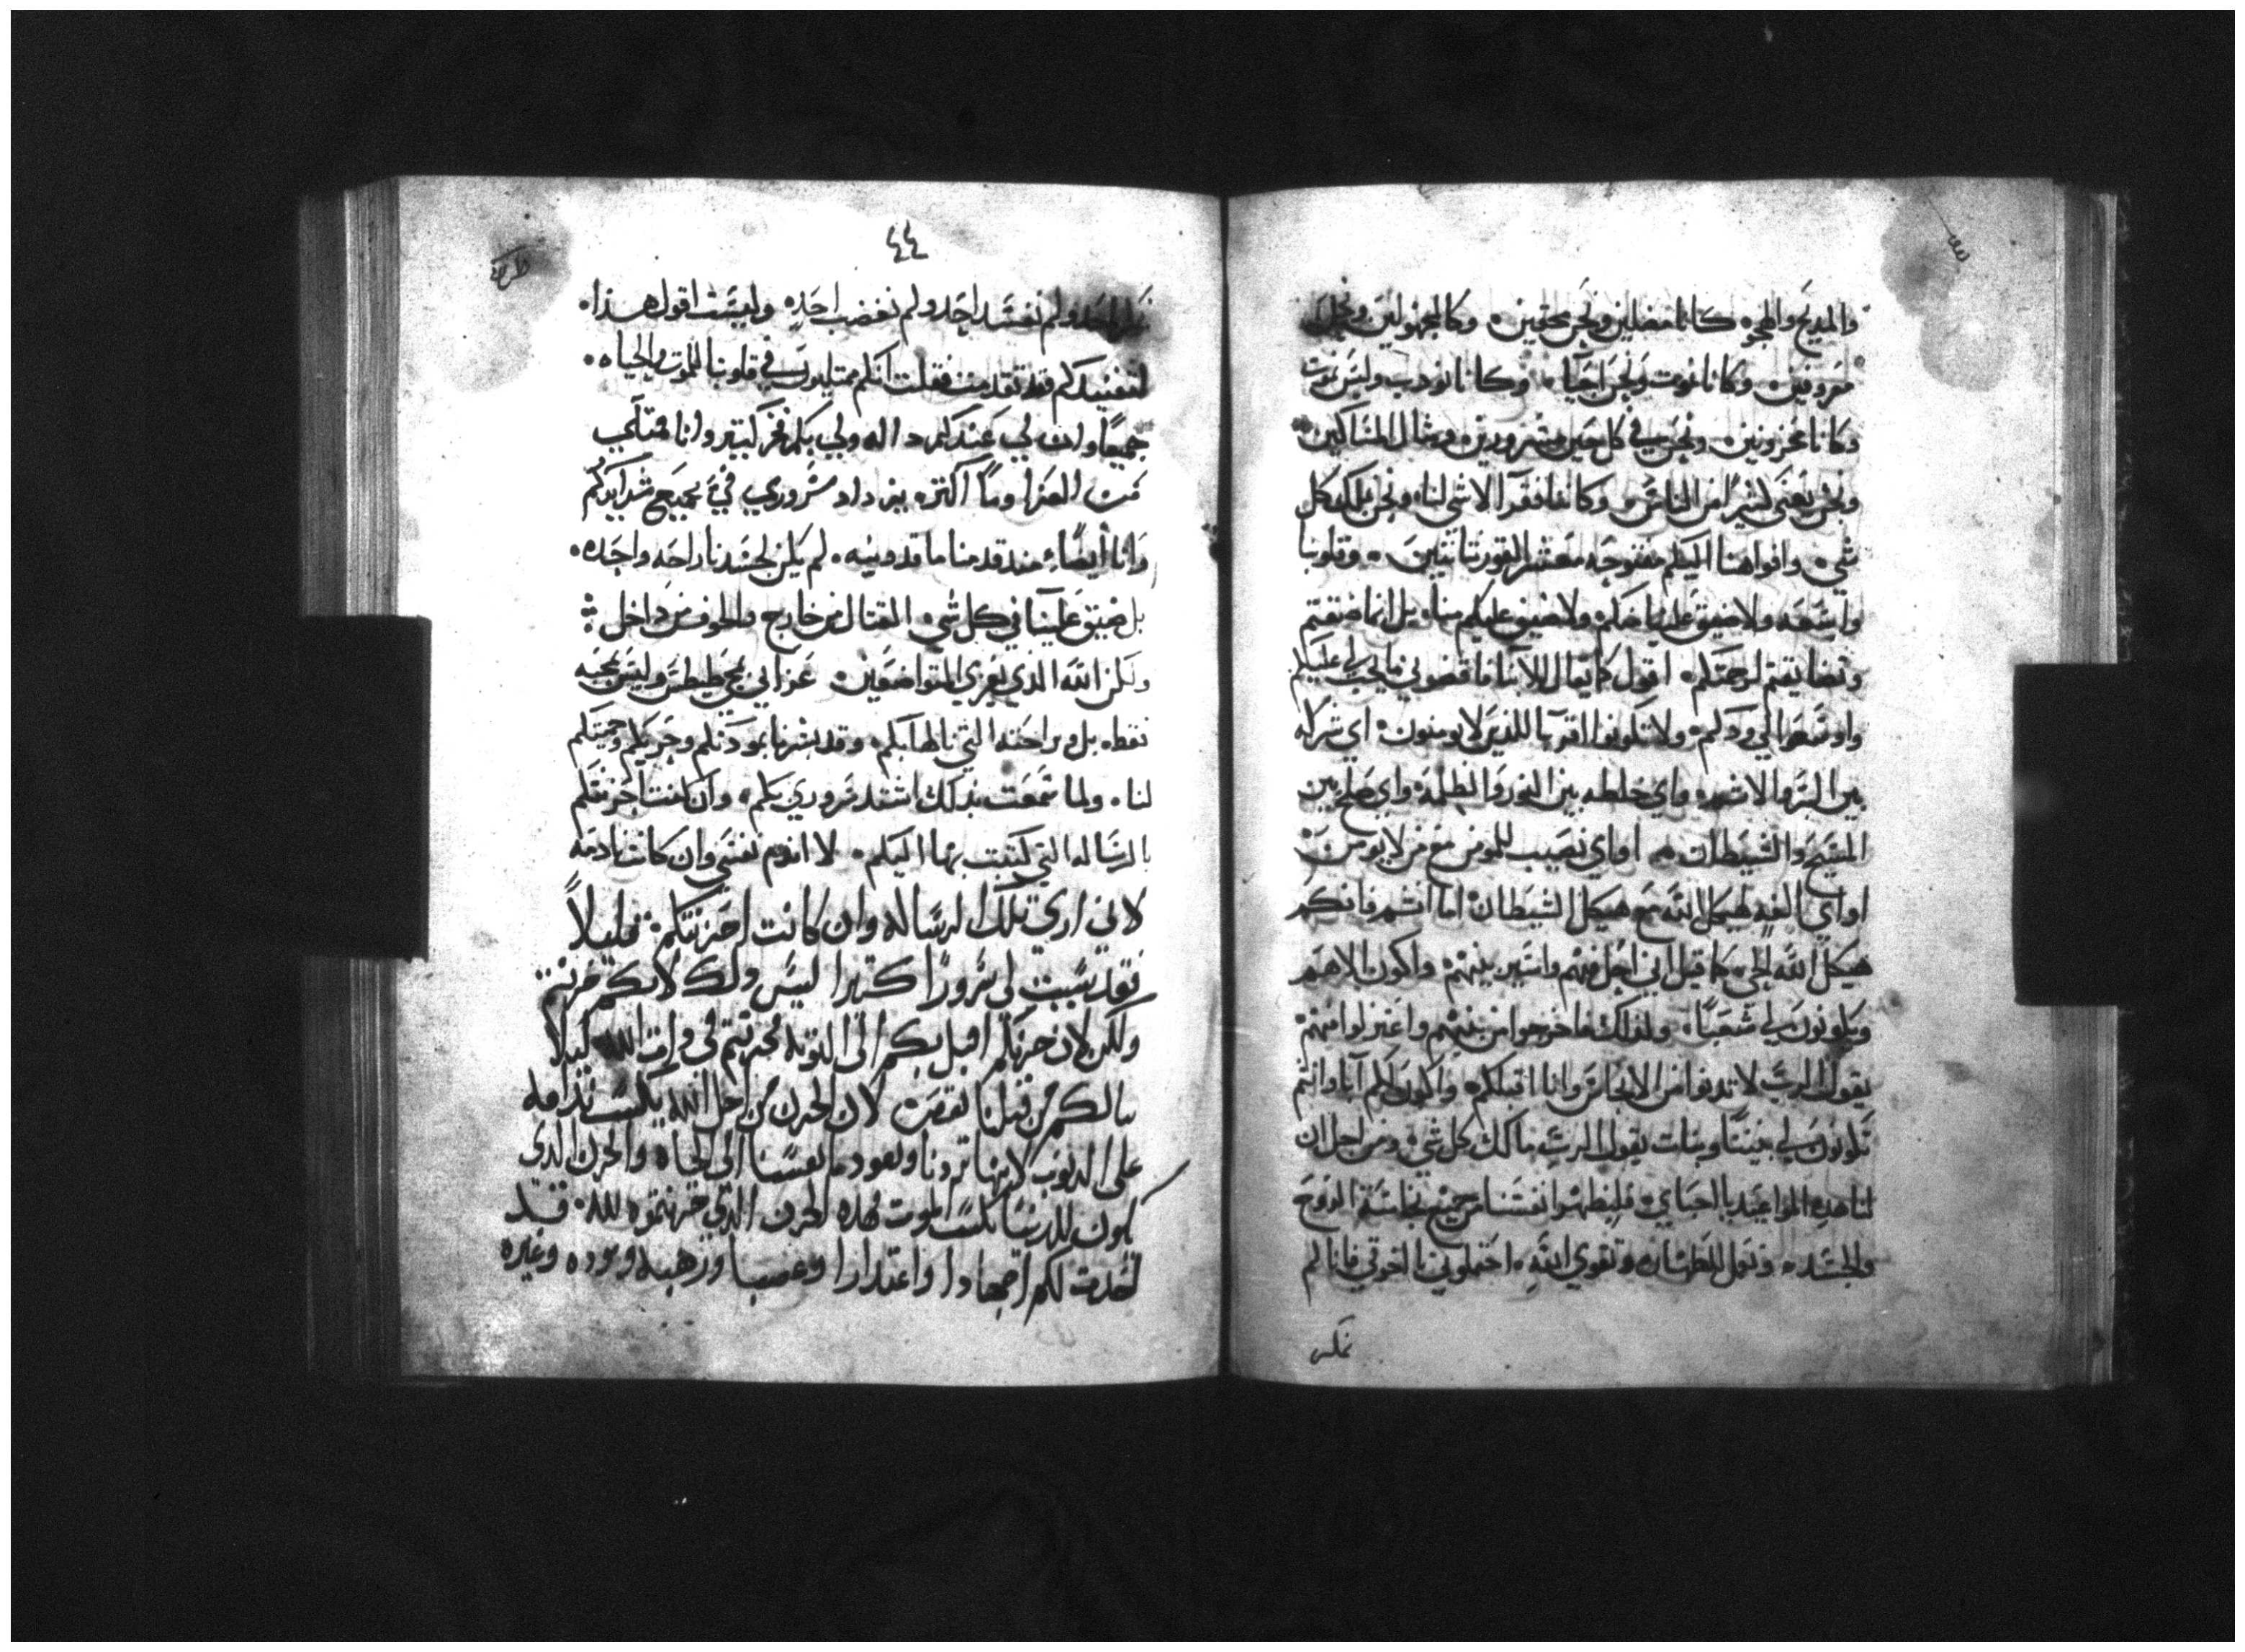 والمديح والهجو. كانا مضلين ونحن محقين. وكالمجهولين ونحن
معروفين. وكانا نموت ونحن احيآ. وكانا نودب وليس نموت
وكانا محزونين. ونحن في كل حين مسرورين. ومثال المساكين
ونحن نغني كثيرًا من الناس. وكاننا فقرآ لا شي لنا. ونحن نملك كل
شي. وافواهنا اليكم مفتوحه معشر القورنتانيين. وقلوبنا
واسعه ولا ضيق علينا منكم. ولا ضيق عليكم منا. بل انما ضقتم
وتضايقتم لرحمتكم. اقول كما يقال للابنا فاقضوني ما يجب لي عليكم
واوسعوا لي ودكم. ولا تكونوا القربا للذين لا يومنون. اي شركه
بين البر والاثم. واي خلطه بين النور والظلمه. واي صلح بين
المسيح والشيطان. او اي نصيب للمومن مع من لا يومن
او اي الفه لهيكل الله مع هيكل الشيطان اما انتم فانكم
هيكل الله الحي. كما قيل اني احل فيهم واسير بينهم. واكون الاههم
ويكونون لي شعبًا. ولذلك فاخرجوا من بينهم واعتزلوا منهم
يقول الرب لا تدنوا من الانجاس وانا اقبلكم. واكون لكم آبا وانتم
تكونون لي بنينًا وبنات يقول الرب مالك كل شي. ومن اجل ان
لنا هذه المواعيد يا احباي. فلنطهروا انفسنا من جميع نجاسة الروح
والجسد. ونعمل للطهاره وتقوي الله. احتملوني يا اخوتي فانا لم
٤٤
احد ولم نفسد احد ولم نغضب احد. وليست اقول هذا.
لتفنيدكم قد تقدمت فقلت انكم ممتليون في قلوبنا للموت والحياه.
جميعًا وان لي عندكم داله ولي بكم فخر كتير وانا ممتلي
من العزا وما اكتر. يزداد سروري في جميع شدايدكم
وانا أيضًا. منذ قدمنا ماقدونيه. لم يكن لجسدنا راحه واحده.
بل ضيق علينا في كل شي. القتال من خارج والخوف من داخل
ولكن الله الذي يعزي المتواضعين. عزاني بمجي طيطس وليس بمجيه
فقط. بل وبراحته التي نالها بكم. وقد بشرنا بمودتكم وحزنكم وحميتكم
لنا. ولما سمعت بذلك اشتد سروري بكم. وان كنت احزنتكم
بالرساله التي كتبت بها اليكم. لا اندم نفسي وان كانت نادمه
لاني اري تلك الرساله وان كانت احزنتكم. قليلاً
فقد سببت لي سرورًا كتيرا ليس ذلك لانكم حزنتم
ولكن لان حزنكم اقبل بكم الى التوبه لحزنتم في ذات الله ليلا
ينالكم من قبلنا نقص لان الحزن من اجل الله يكسب ندامه
على الدنوب لانها تردنا وتعود بانفسنا الى الحياه والحزن الذي
يكون للدنيا يكسب الموت فهذه الحزن الذي حزنتموه لله. فقد
احدث لكم اجتهادا واعتدارا وغضبا ورهبه وموده وغيره